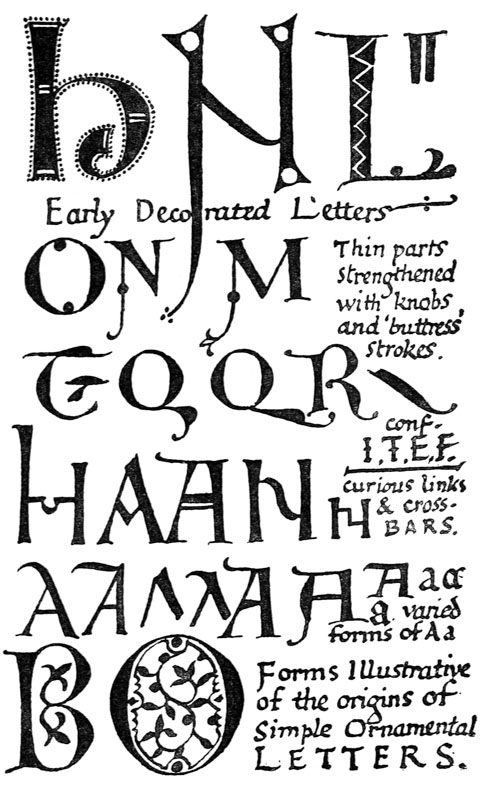 h N L "
Early Decorated Letters
O N M
Thin parts
strengthened
with knobs,
and 'buttress'
strokes.
T Q Q R
conf-
I.T.E.F.
H A A N H
curious links
& cross-
BARS.
A A A A A A A a a
a varied
forms of Aa
B O
Forms Illustrative
of the origins of
Simple Ornamental
LETTERS.